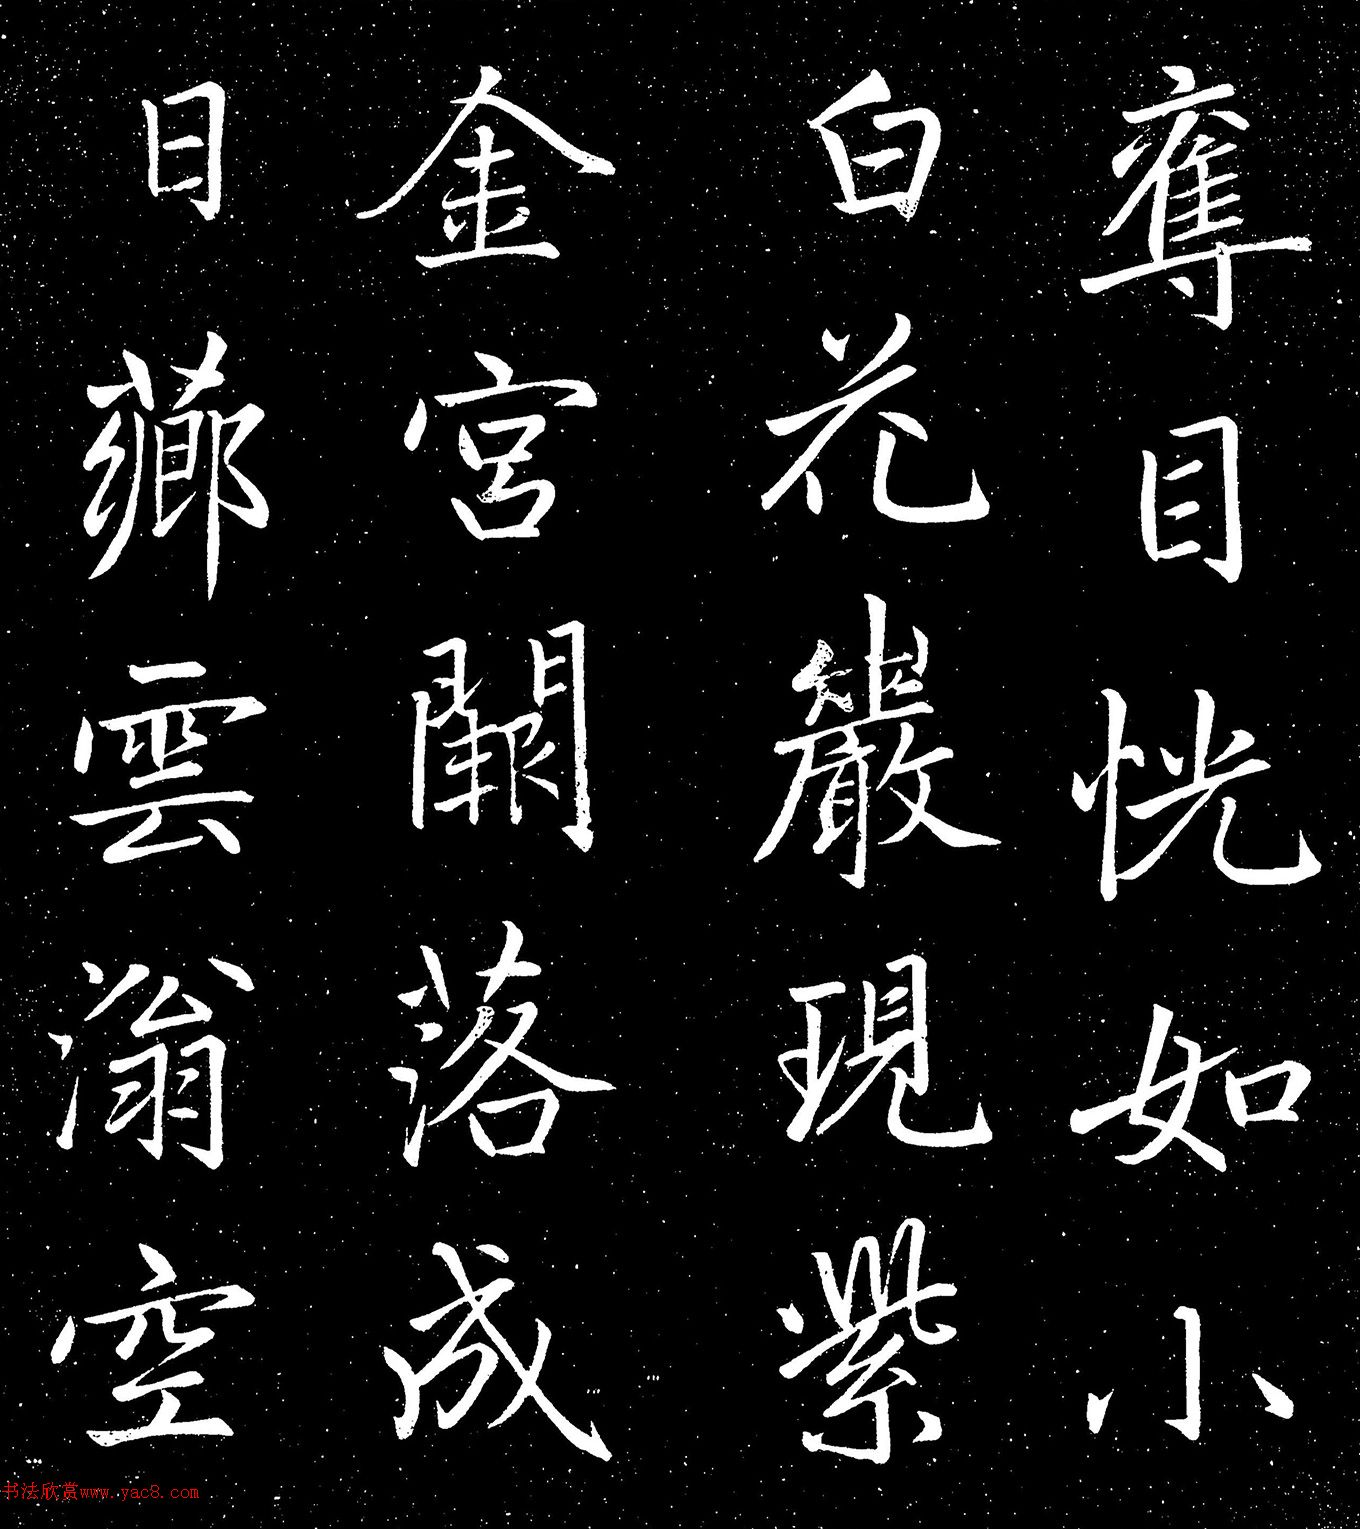 奪目恍如小
白花巖現紫
金宮闕落成
日薌雲滃空
书法欣赏www.yac8.com